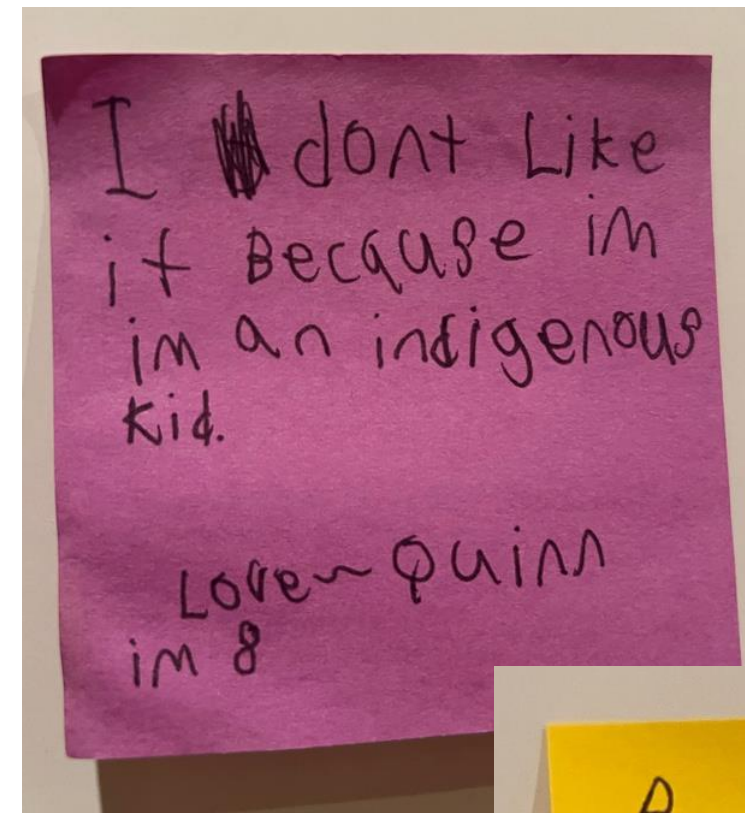 I dont Like
it Because im
im an indigenous
Kid.
Love~Quinn
im 8